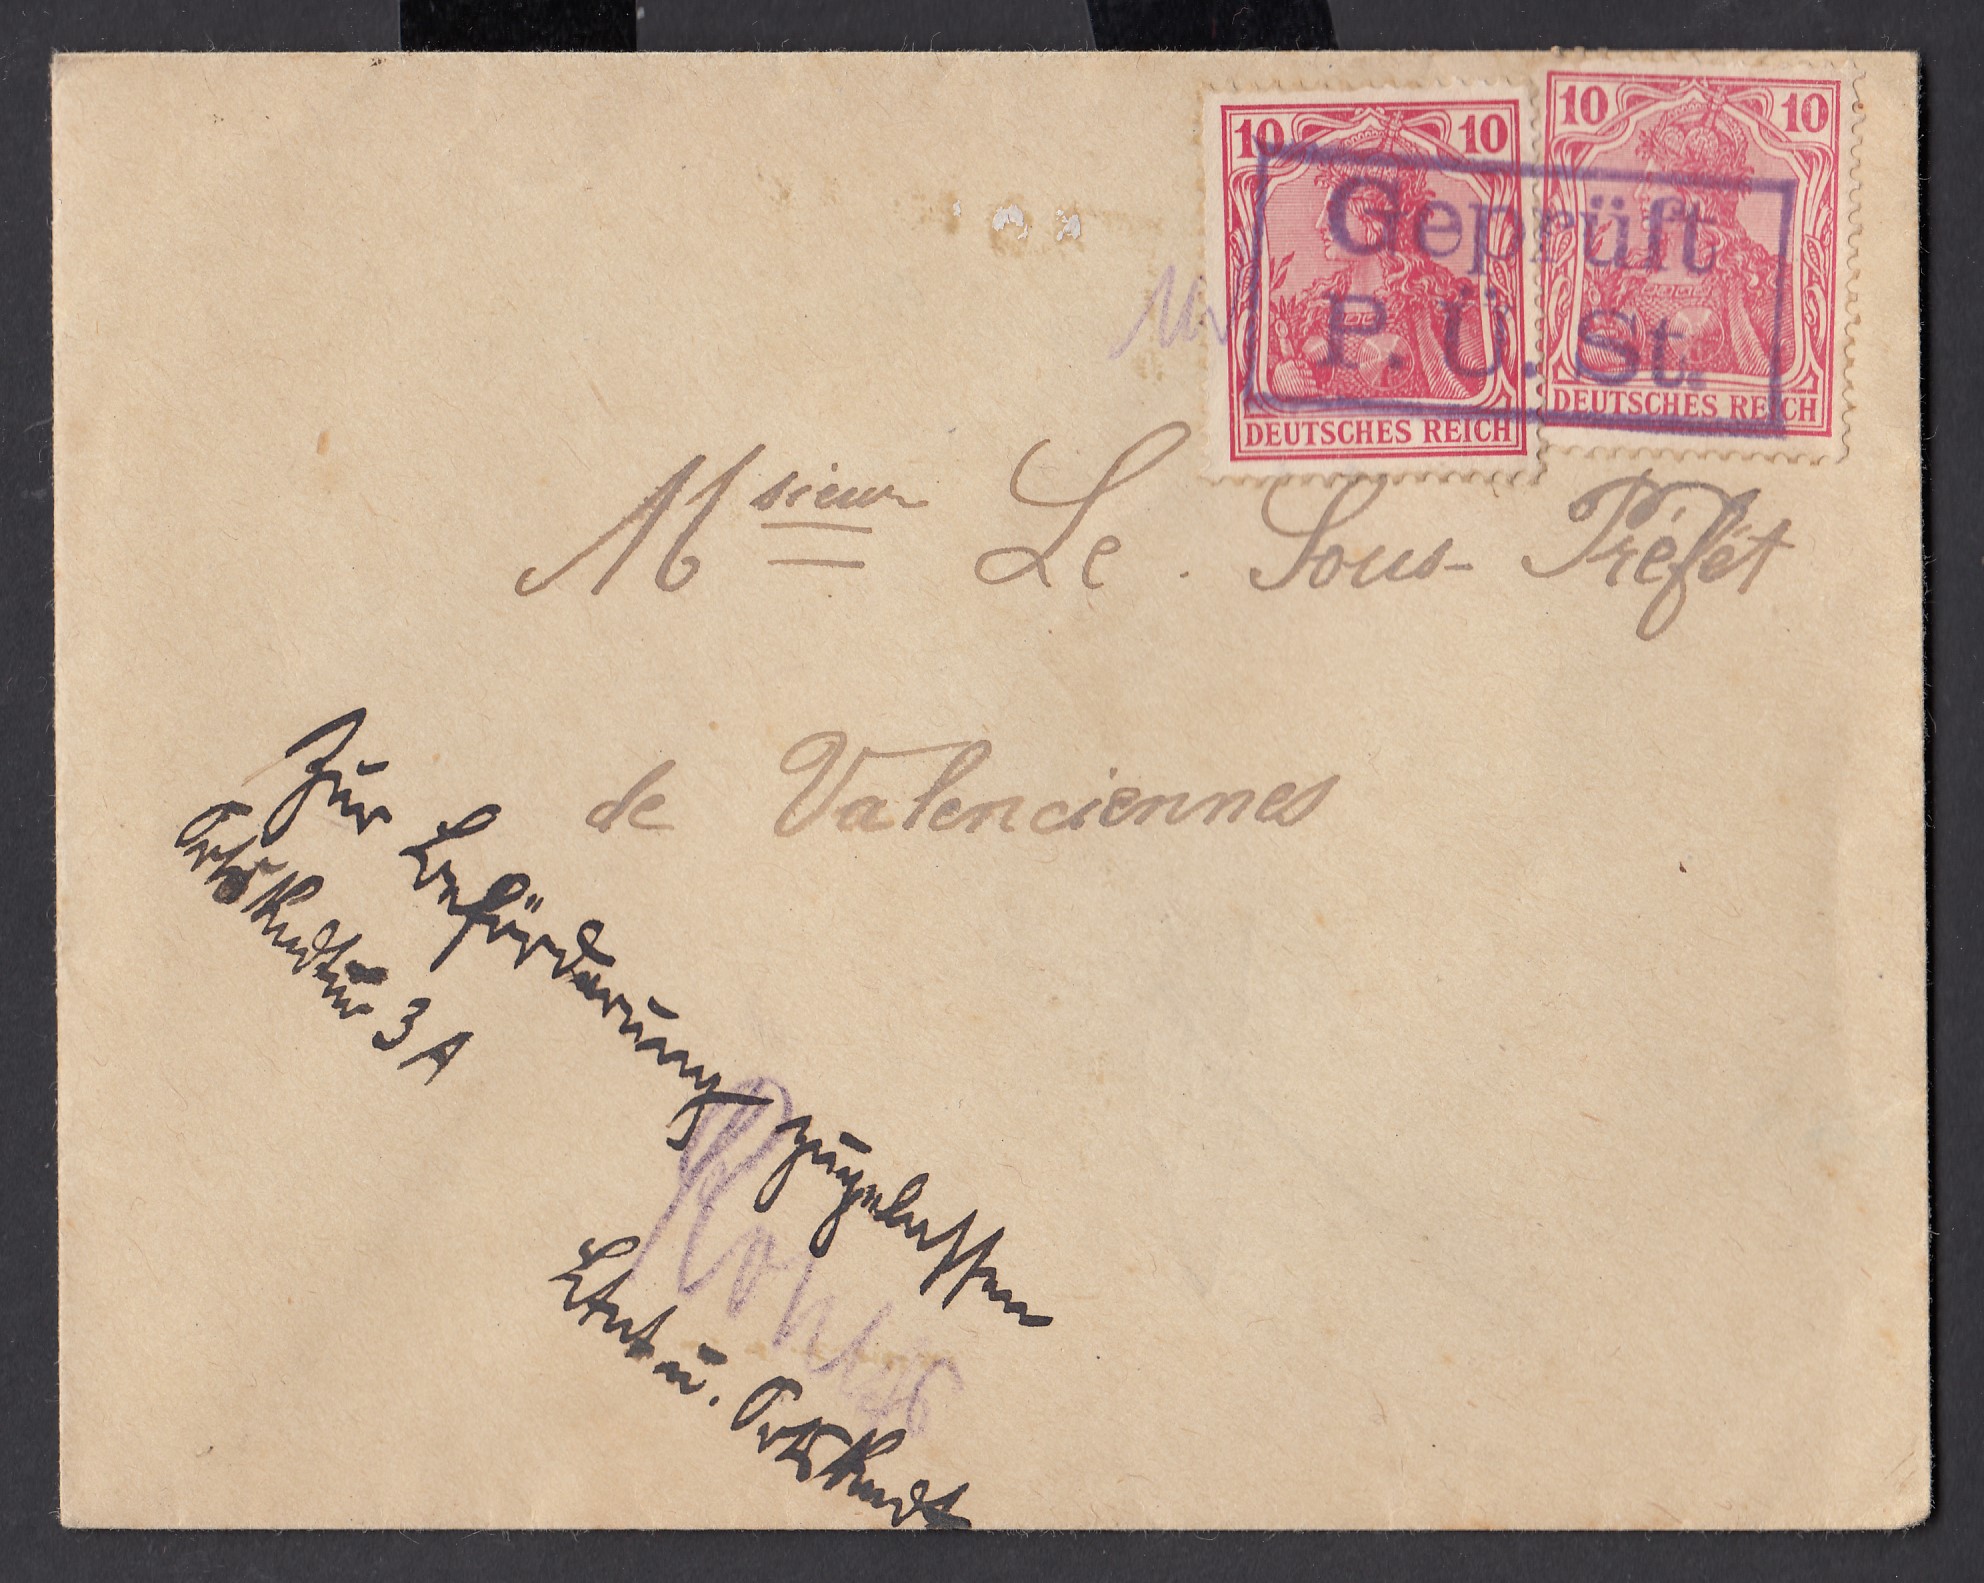 10 10
DEUTSCHES REICH
10 10
DEUTSCHES REICH
Geprüft
P. Ü. St.
Msieur Le Sous-Préfét
de Valenciennes
Zur Beförderung zugelassen
Ortskmdtur 3 A
Ltnt u. Ortskmdt